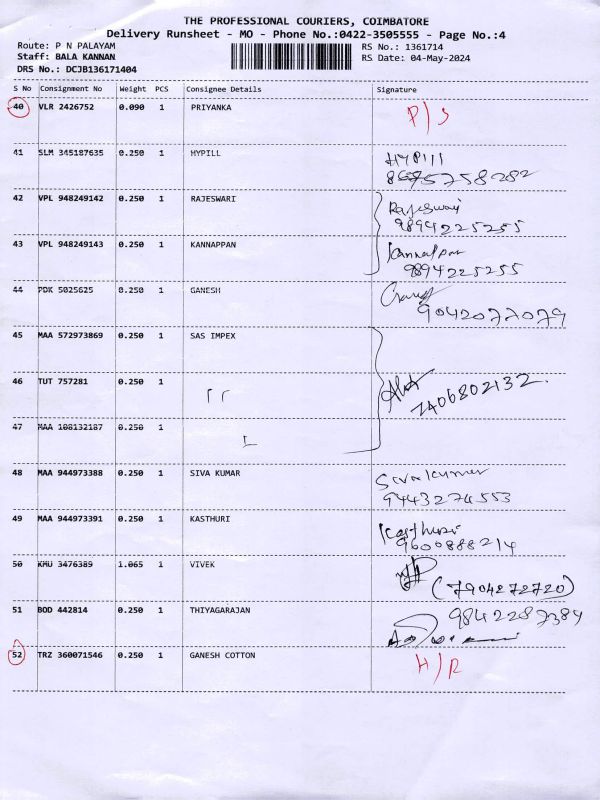 THE PROFESSIONAL COURIERS, COIMBATORE
Delivery Runsheet - MO - Phone No.:0422-3505555 - Page No.:4
Route: P N PALAYAM
RS No.: 1361714
Staff: BALA KANNAN
RS Date: 04-May-2024
DRS No.: DCJB136171404
S No Consignment No Weight PCS Consignee Details Signature
40 VLR 2426752 0.090 1 PRIYANKA P/S
41 SLM 345187635 0.250 1 HYPILL HYPIll
8675758282
42 VPL 948249142 0.250 1 RAJESWARI Rajeswari
9894225255
43 VPL 948249143 0.250 1 KANNAPPAN Kannappan
9894225255
44 PDK 5025625 0.250 1 GANESH
9042077079
45 MAA 572973869 0.250 1 SAS IMPEX
46 TUT 757281 0.250 1
7406802132.
47 MAA 108132187 0.250 1
48 MAA 944973388 0.250 1 SIVA KUMAR Sivakumar
9443274553
49 MAA 944973391 0.250 1 KASTHURI Kasthuri
9600888214
50 KMU 3476389 1.065 1 VIVEK
(7904272720)
51 BOD 442814 0.250 1 THIYAGARAJAN 9842287384
52 TRZ 360071546 0.250 1 GANESH COTTON H/R